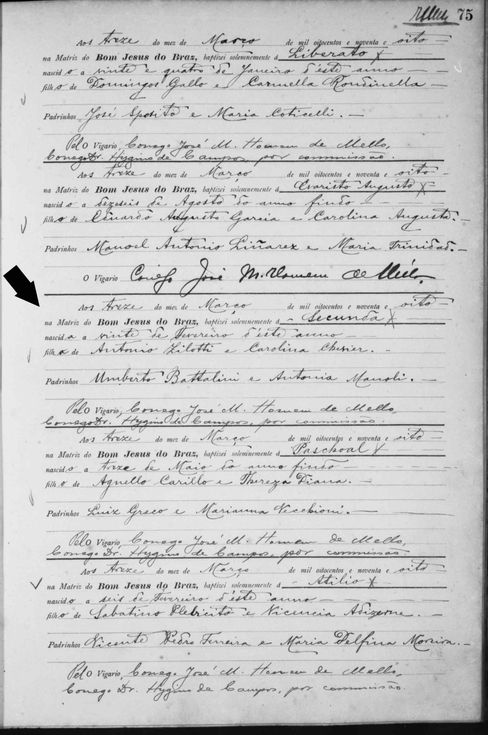 75
Aos treze do mez de Março de mil oitocentos e noventa e oito
na Matriz do Bom Jesus do Braz, baptizei solemnemente á Liberato
nascido a vinte e quatro de Janeiro d'este anno
filho de Domingos Gallo e Carmella Rondinella
Padrinhos José Sposito e Maria Coticelli.
Pelo Vigario, Conego José M. Homem de Mello,
Conego Dr. Hygino de Campos, por commissão.
Aos treze do mez de Março de mil oitocentos e noventa e oito
na Matriz do Bom Jesus do Braz, baptizei solemnemente á Evaristo Augusto
nascido a dezeseis de Agosto do anno findo
filho de Eduardo Augusto Garcia e Carolina Augusta
Padrinhos Manoel Antonio Liñarez e Maria Trinidad.
O Vigario Conego José M. Homem de Mello
Aos treze do mez de Março de mil oitocentos e noventa e oito
na Matriz do Bom Jesus do Braz, baptizei solemnemente á Secunda
nascida a vinte de Fevereiro d'este anno
filha de Antonio Zilotti e Carolina
Padrinhos Umberto Battalini e Antonia Manoli.
Pelo Vigario, Conego José M. Homem de Mello,
Conego Dr. Hygino de Campos, por commissão.
Aos treze do mez de Março de mil oitocentos e noventa e oito
na Matriz do Bom Jesus do Braz, baptizei solemnemente á Paschoal
nascido a treze de Maio do anno findo
filho de Agnello Carillo e Thereza Diana.
Padrinhos Luiz Greco e Marianna
Pelo Vigario, Conego José M. Homem de Mello,
Conego Dr. Hygino de Campos, por commissão
Aos treze do mez de Março de mil oitocentos e noventa e oito
na Matriz do Bom Jesus do Braz, baptizei solemnemente á Atilio
nascido a seis de Fevereiro d'este anno
filho de Sabatino e Vicencia
Padrinhos Vicente Pedro Ferreira e Maria Delfina Moreira.
Pelo Vigario, Conego José M. Homem de Mello,
Conego Dr. Hygino de Campos, por commissão.